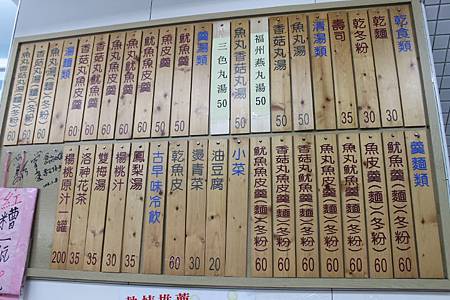 乾食類
乾麵 30
乾冬粉 30
壽司 35
清湯類
魚丸湯 50
香菇丸湯 50
福州燕丸湯 50
魚丸香菇丸湯 50
三色丸湯 50
羹湯類
魷魚羹 50
魚皮羹 50
魚丸羹 50
魷魚魚皮羹 60
魚丸魚皮羹 60
魚丸魷魚羹 60
香菇丸魚皮羹 60
湯麵類
魚丸湯(麵)(冬粉) 60
香菇丸湯(麵)(冬粉) 60
魚丸香菇丸湯(麵)(冬粉) 60
羹麵類
魷魚羹(麵)(冬粉) 60
魚皮羹(麵)(冬粉) 60
魚丸羹(麵)(冬粉) 60
魚丸魷魚羹(麵)(冬粉) 60
魚丸魚皮羹(麵)(冬粉) 60
香菇丸魚皮羹(麵)(冬粉) 60
魷魚魚皮羹(麵)(冬粉) 60
小菜
油豆腐 20
燙青菜 30
乾魚皮 60
古早味冷飲
鳳梨湯 35
楊桃汁 30
雙梅湯 35
洛神花茶 35
楊桃原汁一罐 200
紅糟